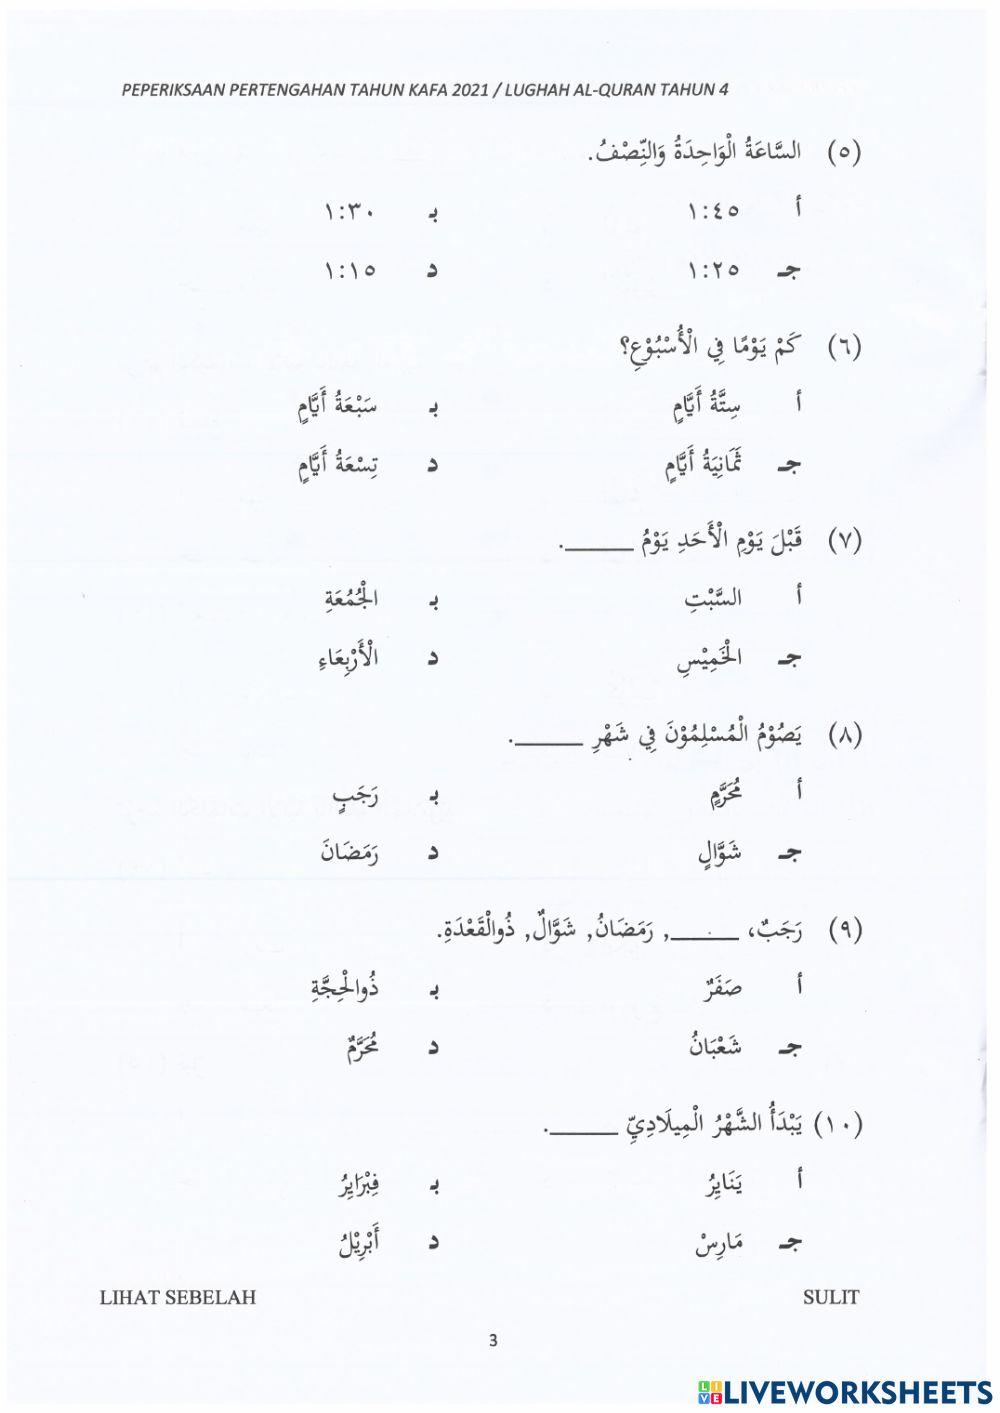 PEPERIKSAAN PERTENGAHAN TAHUN KAFA 2021 / LUGHAH AL-QURAN TAHUN 4
(٥) السَّاعَةُ الْوَاحِدَةُ وَالنِّصْفُ.
أ ١:٤٥ بـ ١:٣٠
جـ ١:٢٥ د ١:١٥
(٦) كَمْ يَوْمًا فِي الْأُسْبُوْعِ؟
أ سِتَّةُ أَيَّامٍ بـ سَبْعَةُ أَيَّامٍ
جـ ثَمَانِيَةُ أَيَّامٍ د تِسْعَةُ أَيَّامٍ
(٧) قَبْلَ يَوْمِ الْأَحَدِ يَوْمُ ______.
أ السَّبْتِ بـ الْجُمُعَةِ
جـ الْخَمِيْسِ د الْأَرْبِعَاءِ
(٨) يَصُوْمُ الْمُسْلِمُوْنَ فِي شَهْرِ ______.
أ مُحَرَّمٍ بـ رَجَبٍ
جـ شَوَّالٍ د رَمَضَانَ
(٩) رَجَبٌ، ______, رَمَضَانُ, شَوَّالٌ, ذُوالْقَعْدَةِ.
أ صَفَرٌ بـ ذُوالْحِجَّةِ
جـ شَعْبَانُ د مُحَرَّمٌ
(١٠) يَبْدَأُ الشَّهْرُ الْمِيلَادِيِّ ______.
أ يَنَايِرُ بـ فِبْرَايِرُ
جـ مَارِسْ د أَبْرِيْلُ
LIHAT SEBELAH SULIT
3
LIVEWORKSHEETS